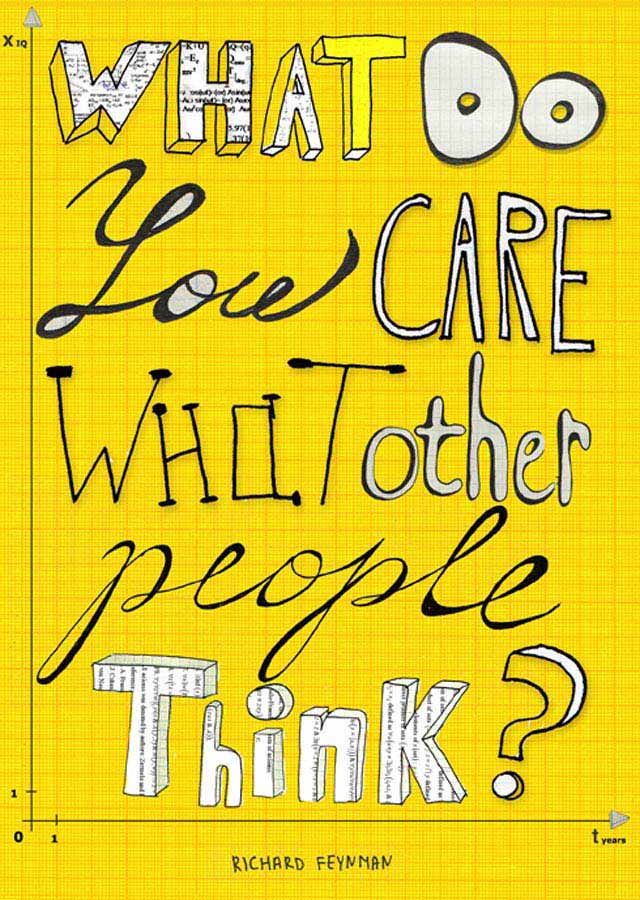 X IQ
WHAT Do
You CARE
WHaT other
people
Think?
1
0 1 t years
RICHARD FEYNMAN